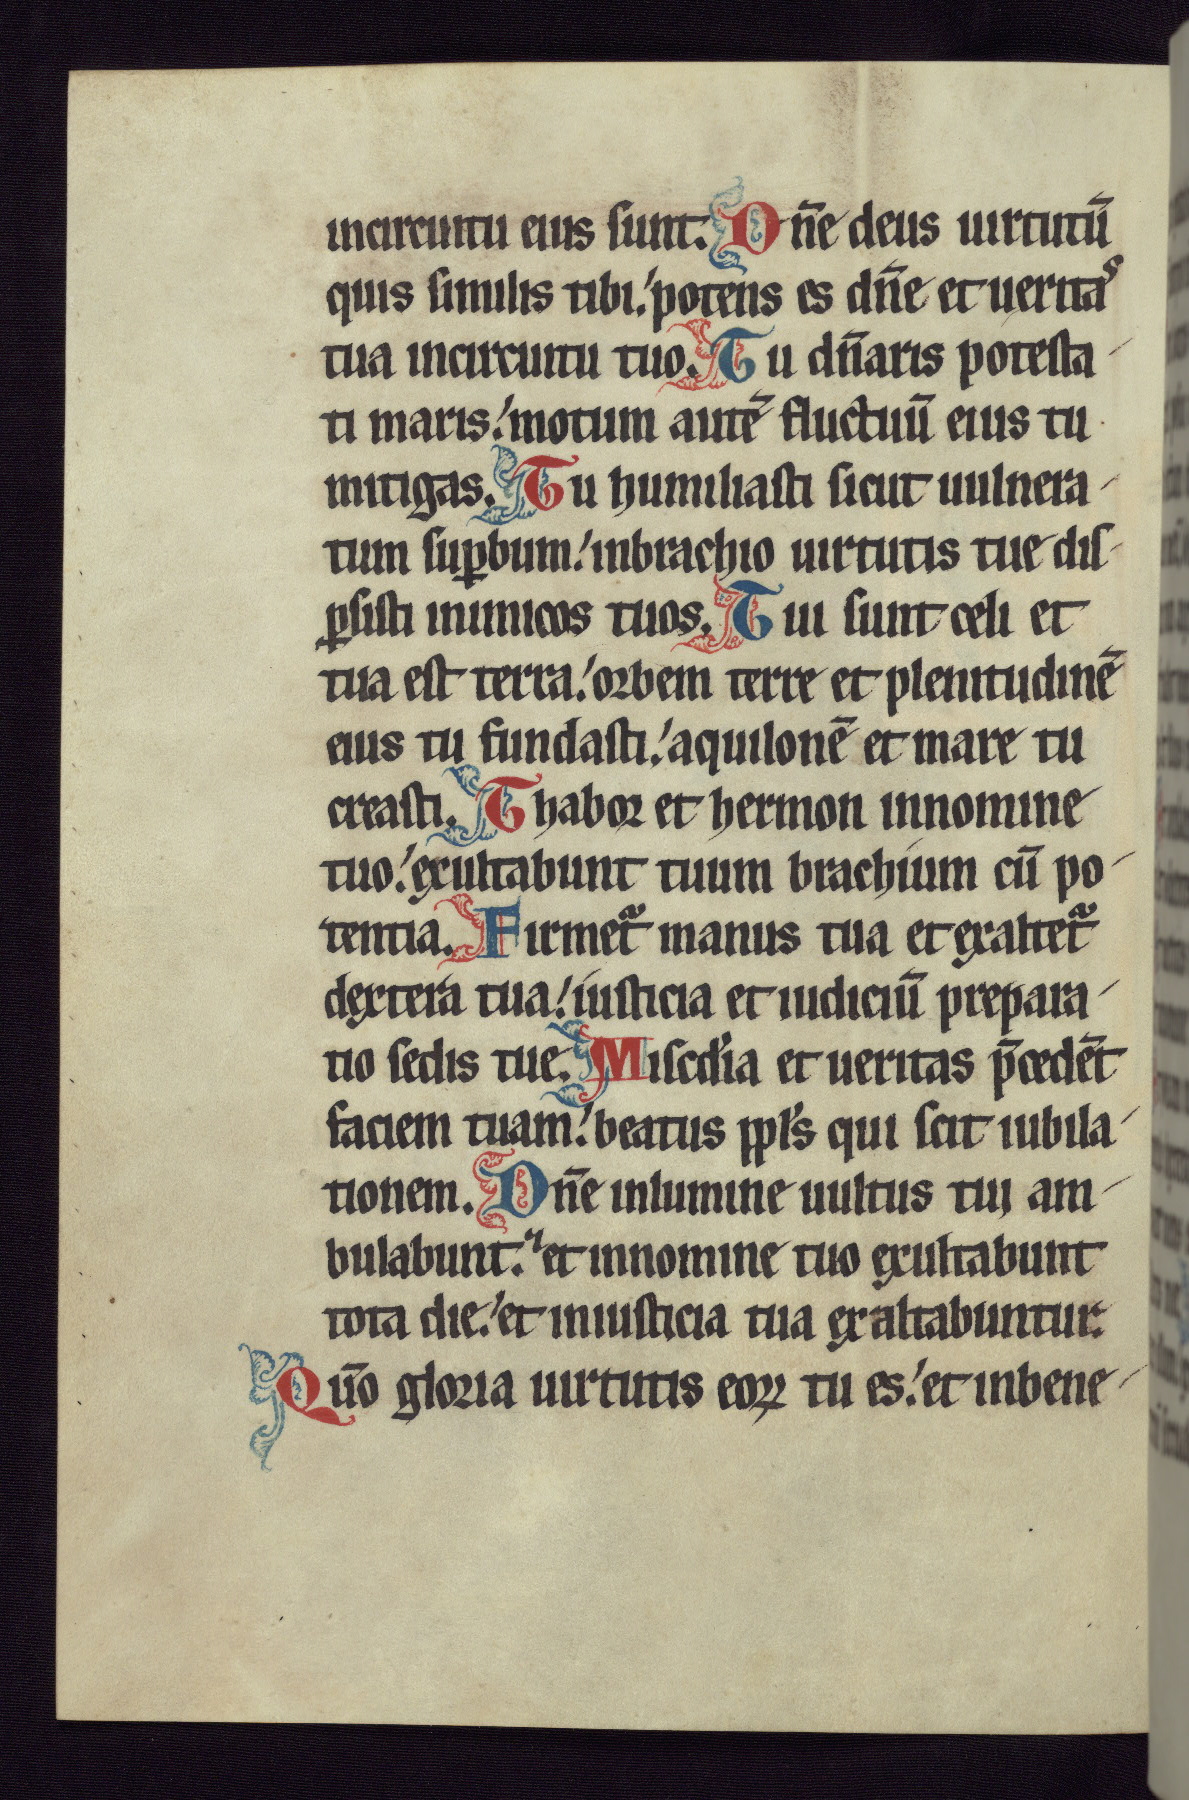 incircuitu eius sunt. Dn̄e deus uirtutū
quis similis tibi: potens es dn̄e et ueritas
tua incircuitu tuo. Tu dn̄aris potesta-
ti maris: motum autē fluctuū eius tu
mitigas. Tu humiliasti sicut uulnera-
tum suꝑbum: inbrachio uirtutis tue dis-
ꝑsisti inimicos tuos. Tui sunt celi et
tua est terra: orbem terre et plenitudinē
eius tu fundasti: aquilonē et mare tu
creasti. Thabor et hermon innomine
tuo: exultabunt tuum brachium cū po-
tentia. Firmet᷑ manus tua et exaltet᷑
dextera tua: iusticia et iudiciū prepara-
tio sedis tue. Misc̄dia et ueritas p̄cedēt
faciem tuam: beatus ppl's qui scit iubila-
tionem. Dn̄e inlumine uultus tui am-
bulabunt: et innomine tuo exultabunt
tota die: et iniusticia tua exaltabuntur.
Qūo gloria uirtutis eoꝝ tu es: et inbene-